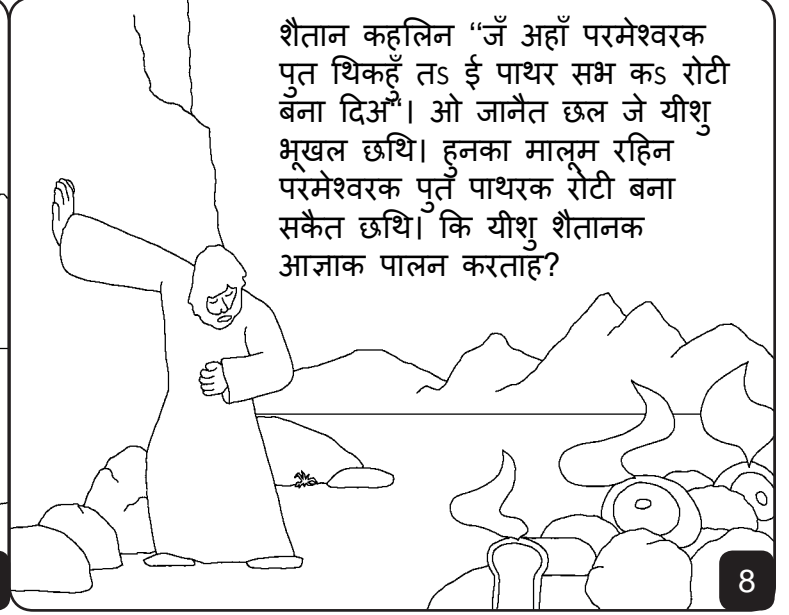 शैतान कहलिन “जँ अहाँ परमेश्वरक
पुत थिकहुँ तs ई पाथर सभ कs रोटी
बना दिअ“। ओ जानैत छल जे यीशु
भूखल छथि। हुनका मालूम रहिन
परमेश्वरक पुत पाथरक रोटी बना
सकैत छथि। कि यीशु शैतानक
आज्ञाक पालन करताह?
8